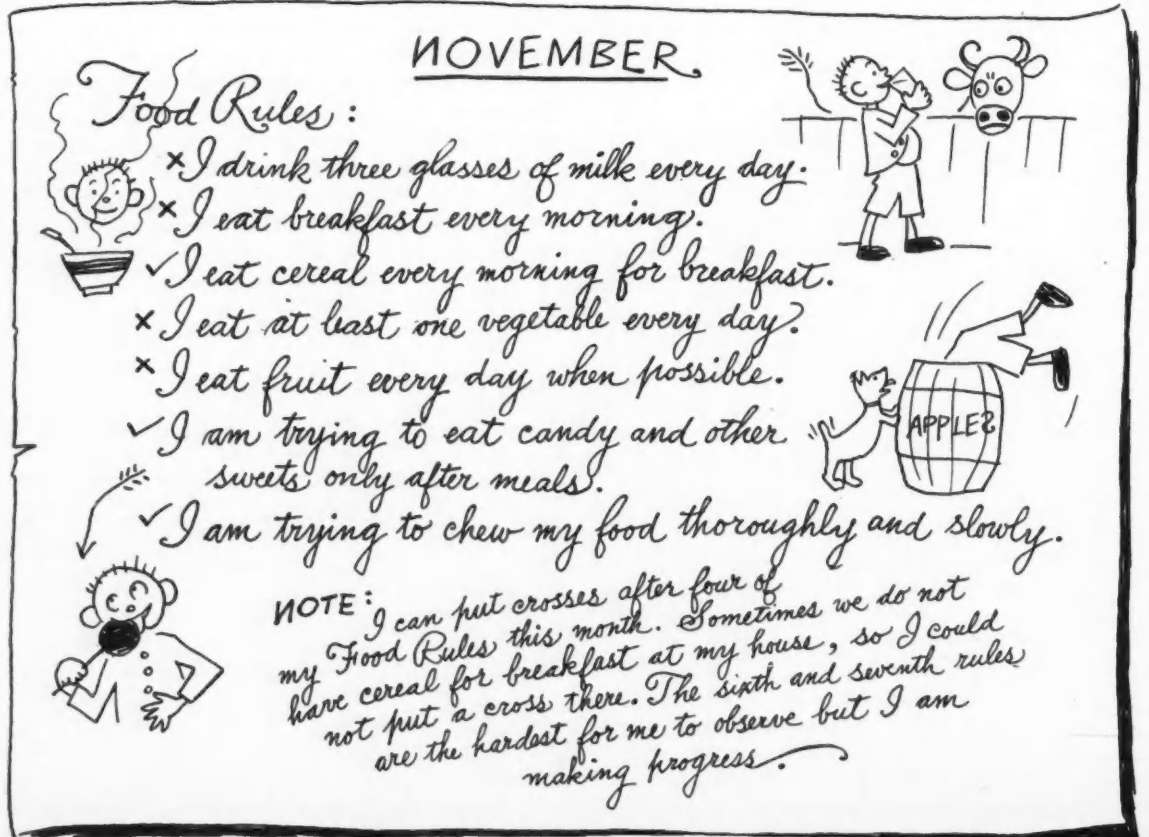 NOVEMBER
Food Rules:
× I drink three glasses of milk every day.
× I eat breakfast every morning.
✓ I eat cereal every morning for breakfast.
× I eat at least one vegetable every day.
× I eat fruit every day when possible.
✓ I am trying to eat candy and other
sweets only after meals.
APPLES
✓ I am trying to chew my food thoroughly and slowly.
NOTE: I can put crosses after four of
my Food Rules this month. Sometimes we do not
have cereal for breakfast at my house, so I could
not put a cross there. The sixth and seventh rules
are the hardest for me to observe but I am
making progress.